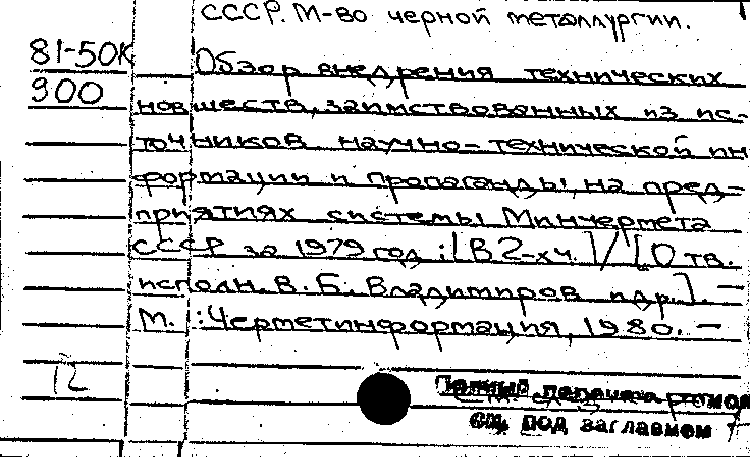 СССР. М-во черной металлургии.
81-50К
900
Обзор внедрения технических
новшеств, заимствованных из ис-
точников научно-технической ин
формации и пропаганды, на пред-
приятиях системы Минчермета
СССР за 1979 год : [В 2-х ч.] / [Отв.
исполн. В. Б. Владимиров и др.]. —
М. : Черметинформация, 1980. —
12
Полный перечень
см. под заглавием